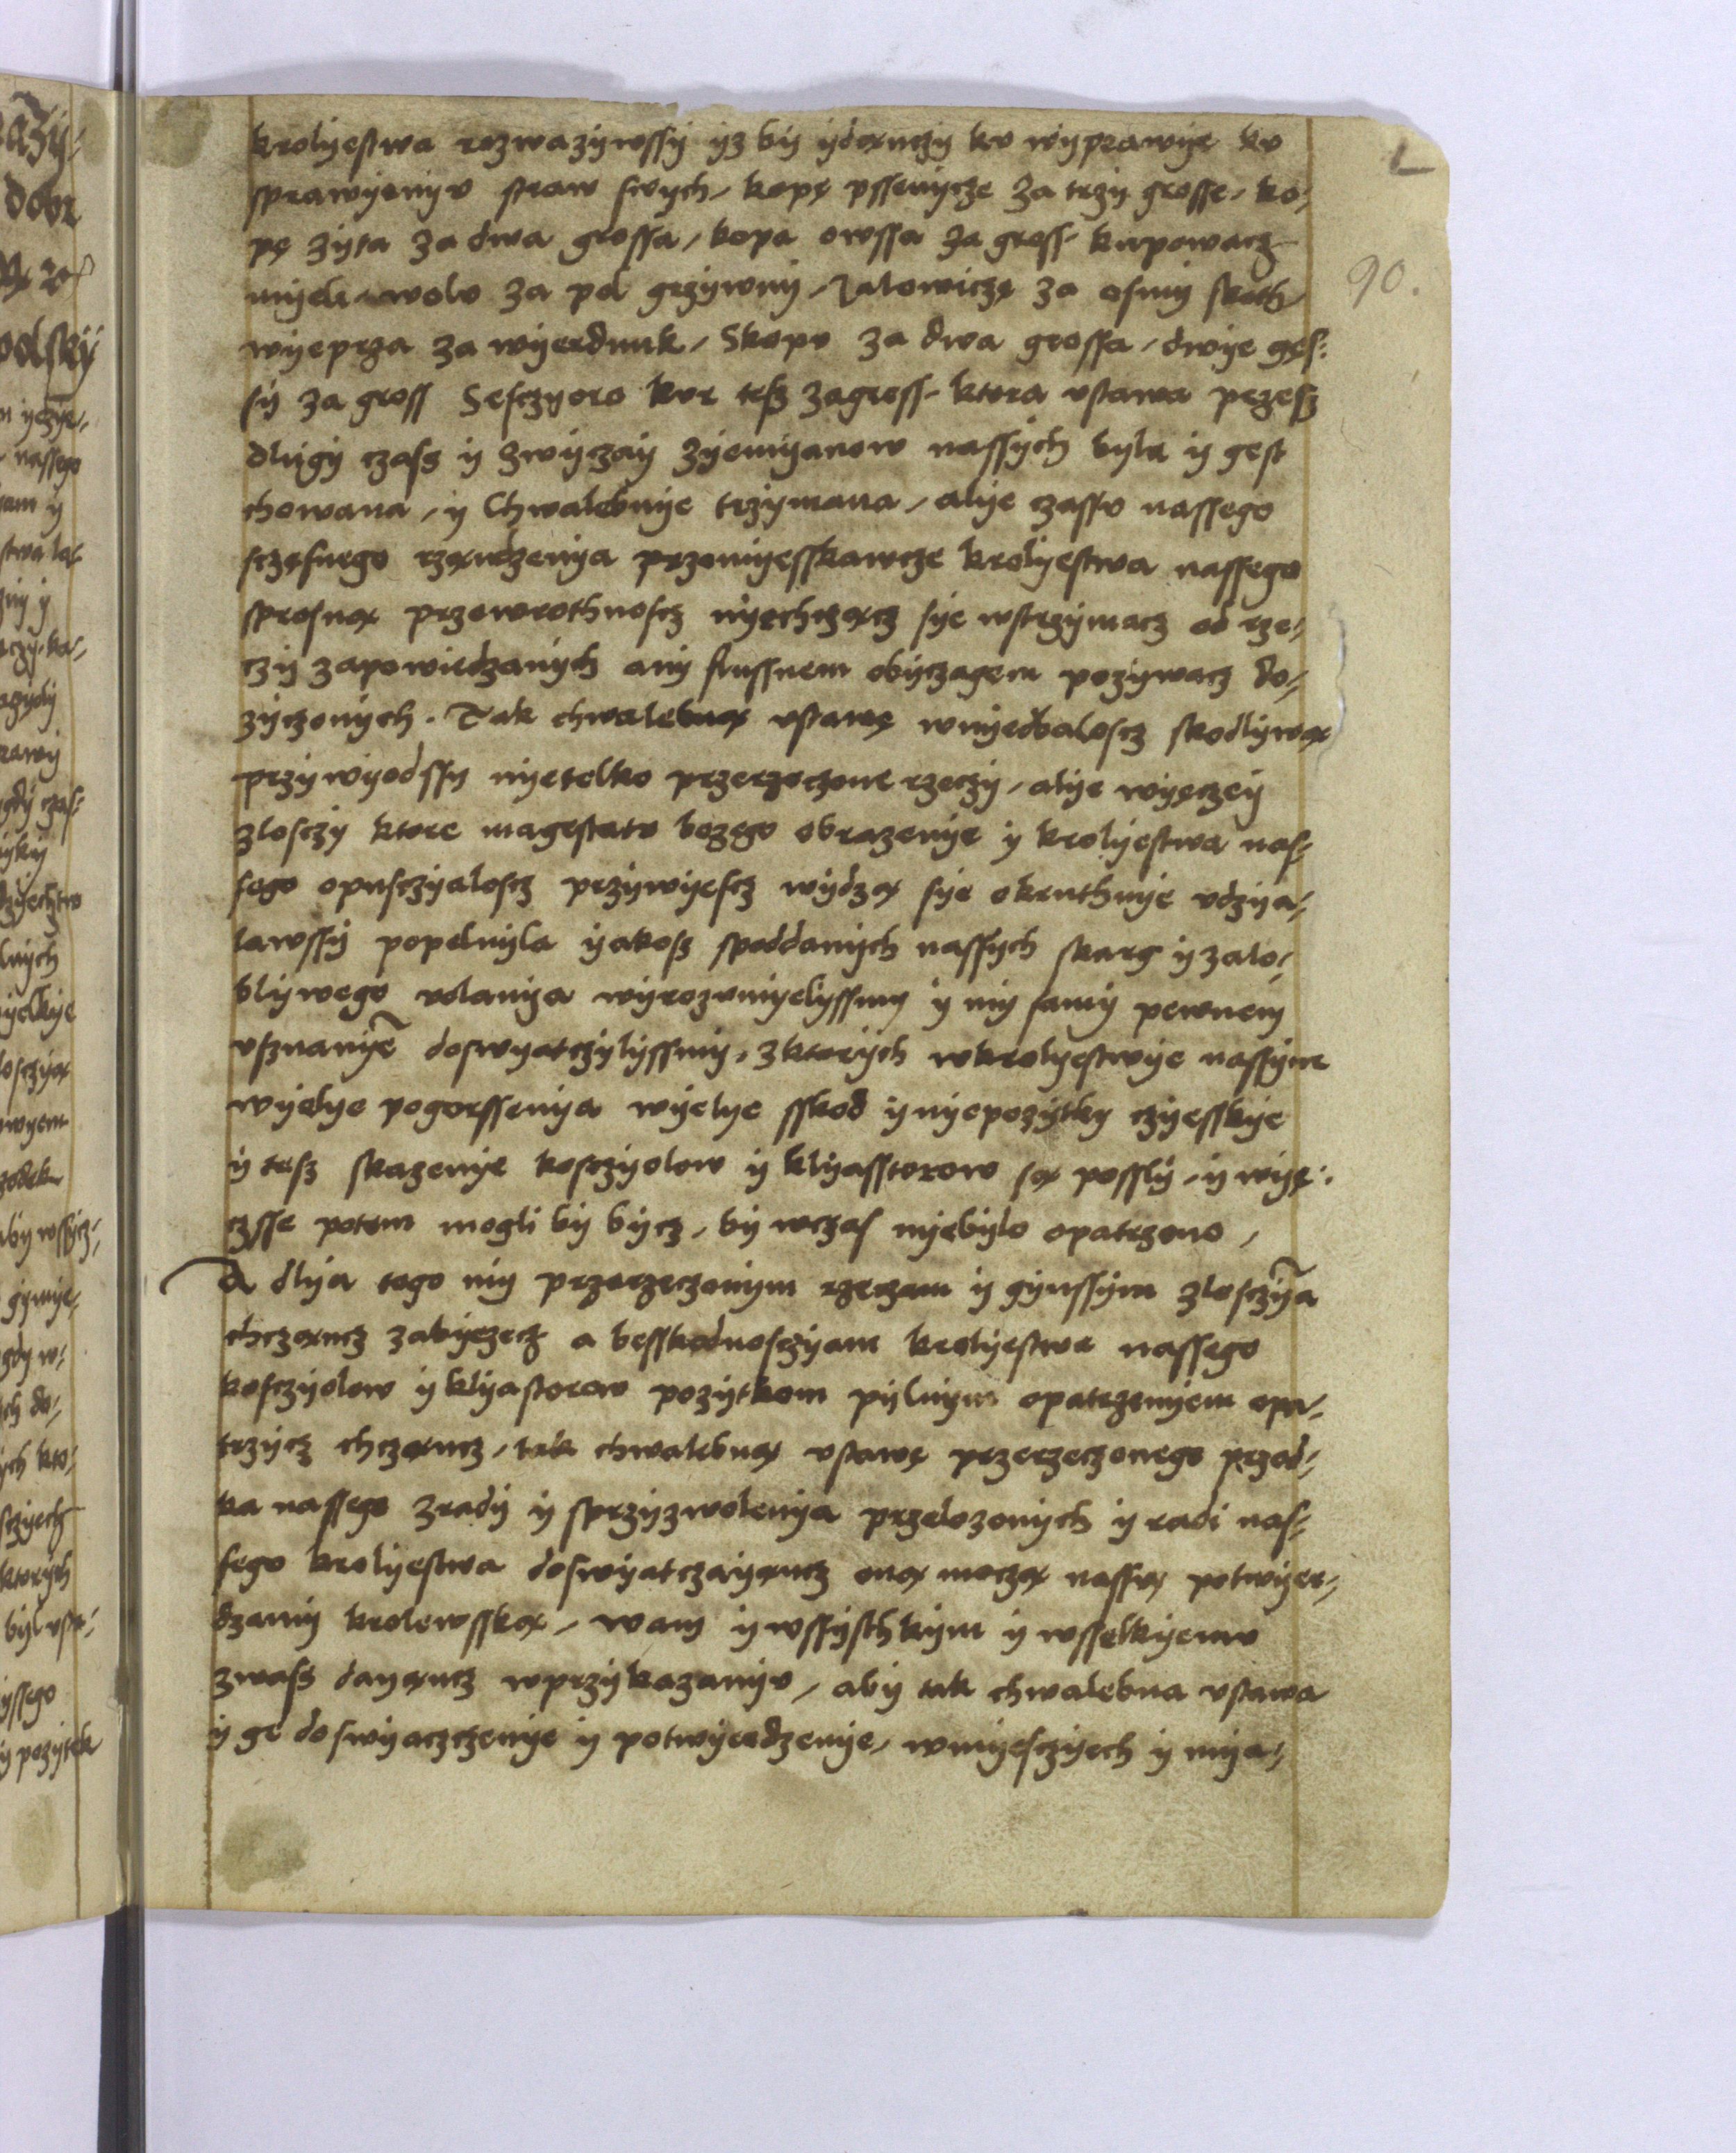 krolyestwa rozwazywssy yz by ydoxnczy ku wyprawye ku
sprawyenyv straw swych, kopę pssenycze za trzy grosse, ko-
pę zyta za dwa grossa, kopa owssa za gross kupowacz
myely, wolu za pol grzywny, Jalowiczę za osmy skoth
wyeprza za wyerdunk, Skopu za dwa grossa, dwye gęs-
sy za gross Sesczyoro kur tesz zagross, ktora ustawa przesz
dlugy czass y zwyczay zyemyanow nassych byla y gest
chowana, y Chwalebnye trzymana, alye czassu nassego
sczęsnego rzoxndzenya przemyesskawcze krolyestwa nassego
sprosnox przewrothnoscz nyechczoxcz sye wstrzymacz od rze-
czy zapowiedzanych any slussnem obyczagem pozywacz do-
zyczonych. Tak chwalebnox ustawę wnyedbaloscz skodlywox
przywyodssy nyetelko przerzeczone rzeczy, alye wyęczey
zlosczy ktore magestatu bozego obrazenye y krolyestwa nas-
sego opusczyaloscz przywyescz wydzox sye okruthnye udzya-
lawssy popelnyla yakosz spoddanych nassych skarg y zalo-
blywego volanya wyrozumyelyssmy y my samy pewnem
usznanye doswyatczylyssmy, zktorych wkrolyestwye nassym
wyelye pogorssenya wyelye sskod y nyepozytky czyesskye
y tesz skazenye kosczyolow y klyasstorow sox possly, y wyę-
czsse potem mogli by bycz, by wczas nyebylo opatrzono,
A dlya tego my przerzeczonym rzeczam y gynssym zlosczya
chczoxncz zabyezecz a besskodnosczyam krolyestwa nassego
kosczyolow y klyastorow pozytkom pylnym opatrzenyem opa-
trzycz chczoxncz, tak chwalebnox ustawę przerzeczonego przod-
ka nassego zrady y sprzyzwolenya przelozonych y radi nas-
sego krolyestwa doswyatczayoxncz onox moczox nassox potwyer-
dzamy krolewsskox, wam y wssysthkym y wsselkyemu
zwass dayoxncz wprzykazanyv, aby tak chwalebna ustawa
y ge doswyaczczenye y potwyerdzenye, wmyesczyech y mya-
90.